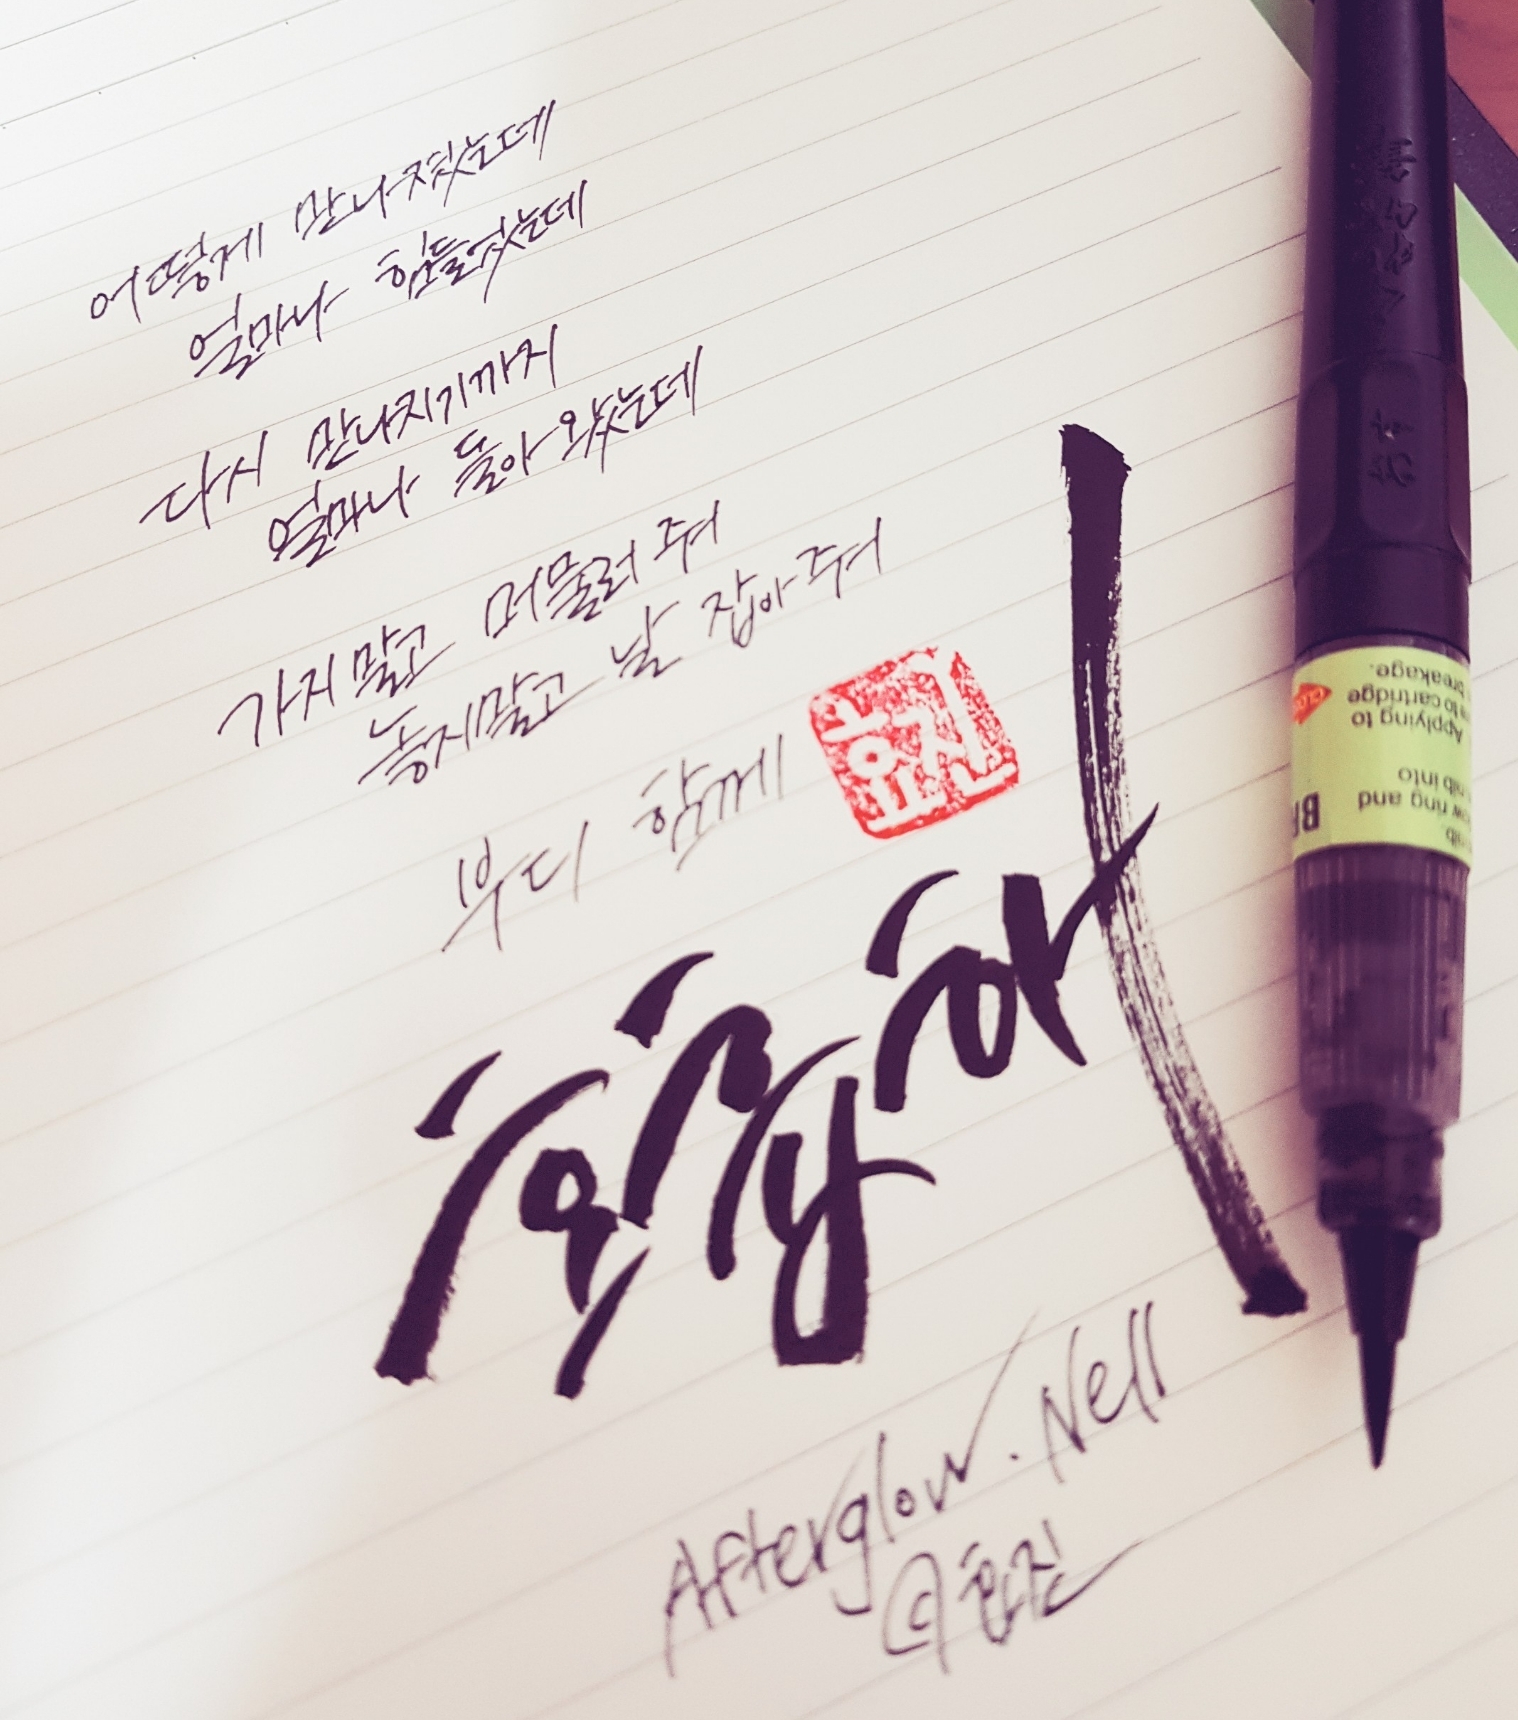 어떻게 만나졌는데
얼마나 힘들었는데
다시 만나지기까지
얼마나 돌아 왔는데
가지말고 머물러 줘
놓지말고 날 잡아 줘
부디 함께
효진
호흡하자
Afterglow. Nell
@효진
breakage.
to cartridge
Applying to
nib into
ow ring and